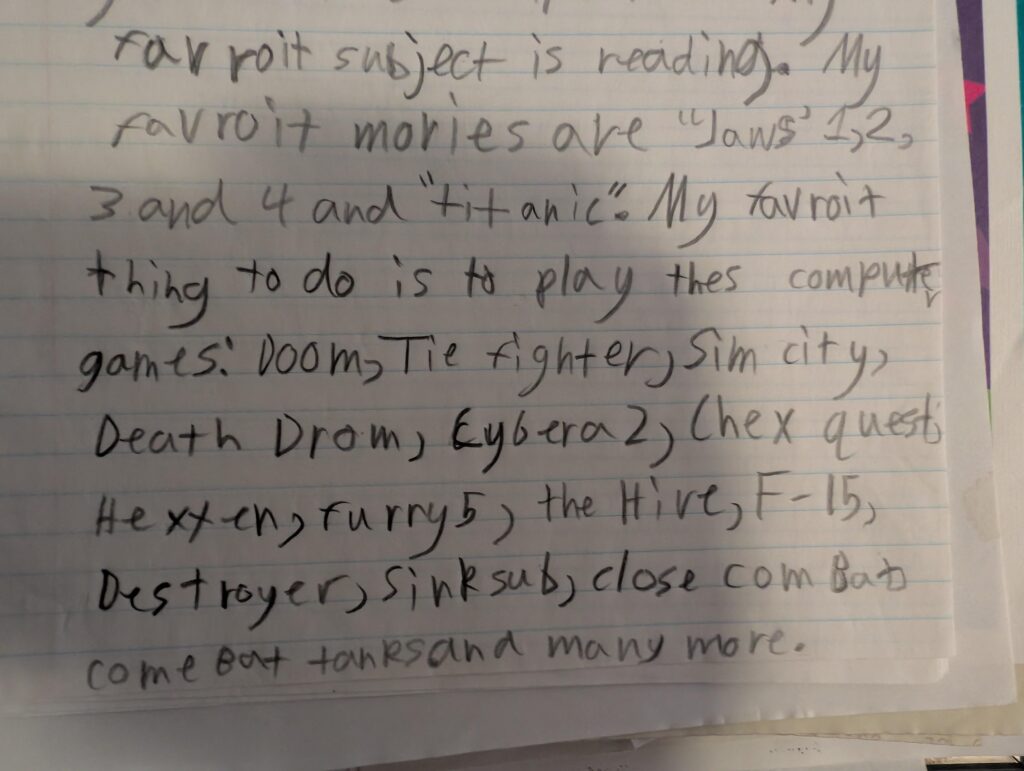 favroit subject is reading. My
favroit movies are "Jaws' 1,2,
3 and 4 and "titanic". My favroit
thing to do is to play thes computer
games: Doom, Tie fighter, Sim city,
Death Drom, Cybera 2, Chex quest,
Hexxen, furry5, the Hive, F-15,
Destroyer, Sinksub, close com Bat,
come Bat tanksand many more.